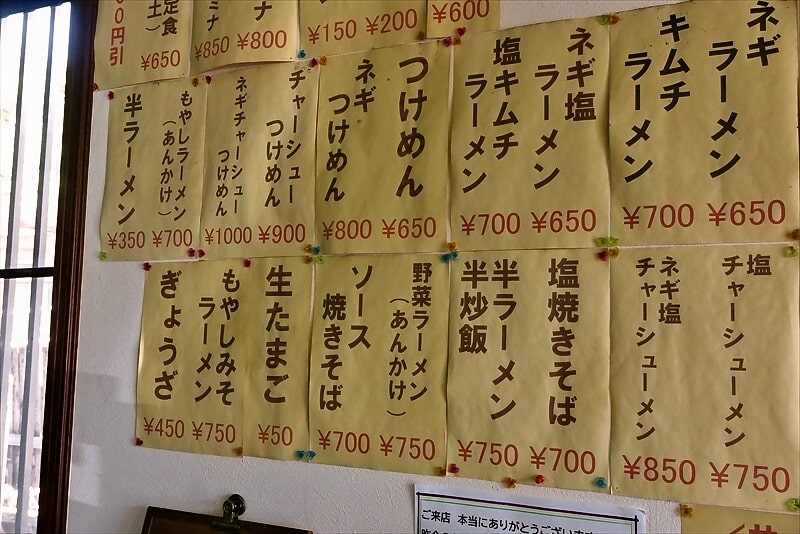 ¥600
¥200
¥150
ナ
¥800
ミナ
¥850
定食
土）
¥650
００円引
ネギ
ラーメン
¥650
キムチ
ラーメン
¥700
ネギ塩
ラーメン
¥650
塩キムチ
ラーメン
¥700
つけめん
¥650
ネギ
つけめん
¥800
チャーシュー
つけめん
¥900
ネギチャーシュー
つけめん
¥1000
もやしラーメン
（あんかけ）
¥700
半ラーメン
¥350
塩
チャーシューメン
¥750
ネギ塩
チャーシューメン
¥850
塩焼きそば
¥700
半ラーメン
半炒飯
¥750
野菜ラーメン
（あんかけ）
¥750
ソース
焼きそば
¥700
生たまご
¥50
もやしみそ
ラーメン
¥750
ぎょうざ
¥450
ご来店 本当にありがとうございます